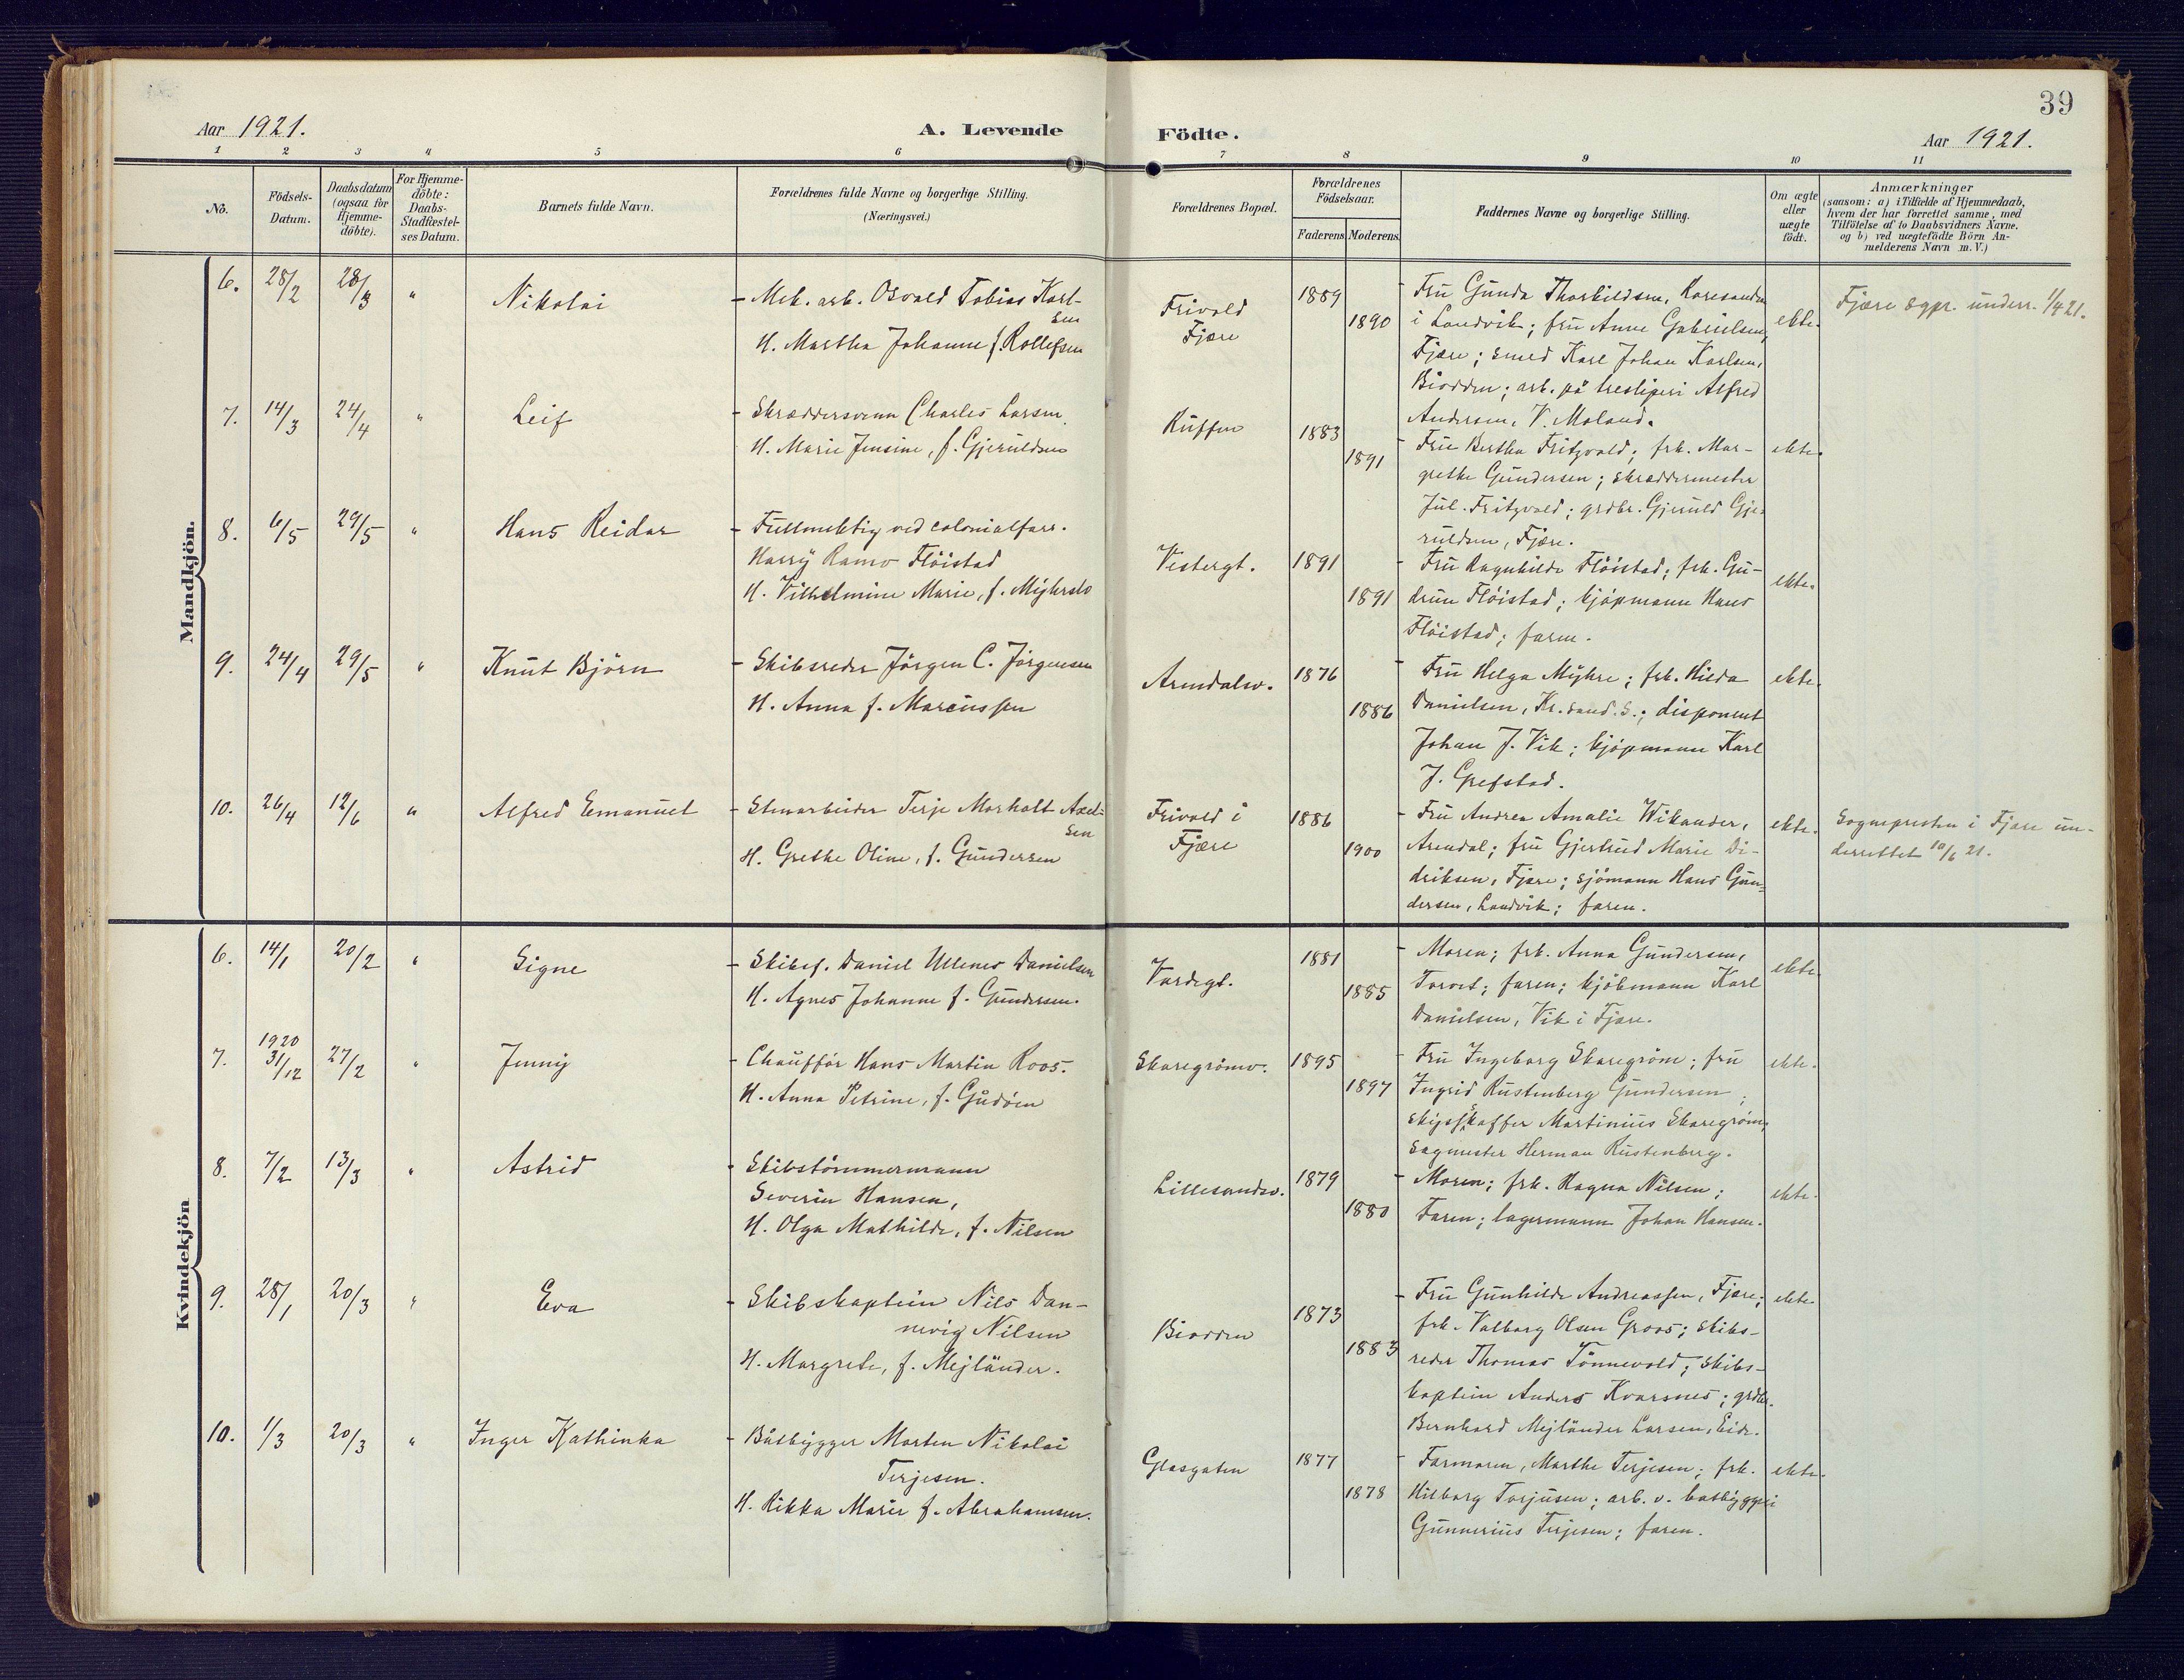 39
Aar 1921.
A. Levende
Födte.
Aar 1921.
1 2 3 4 5 6 7 8 9 10 11
No.
Födsels-
Datum.
Daabsdatum
(ogsaa for
Hjemme-
döbte).
For Hjemme-
döbte:
Daabs-
Stadfæstel-
ses Datum.
Barnets fulde Navn.
Forældrenes fulde Navne og borgerlige Stilling.
(Næringsvei.)
Forældrenes Bopæl.
Forældrenes
Födselsaar.
Faderens Moderens
Faddernes Navne og borgerlige Stilling.
Om ægte
eller
uægte
födt.
Anmærkninger
(saasom: a) i Tilfælde af Hjemmedaab,
hvem der har forrettet samme, med
Tilföielse af to Daabsvidners Navne,
og b) ved uægtefödte Börn An-
melderens Navn m. V.)
Mandkjön.
6. 28/2 28/3 " Nikolai
- Mek. arb. Osvald Tobias Karl-
sen
H. Martha Johanne f. Rollefsen
Frivold
Fjære
1889
1890
- Fru Gunda Thorkildsen,
i Landvik; fru Anne Gabrielsen,
Fjære; smed Karl Johan Karlsen,
Biodden; arb. på tresliperi Alfred
Andersen, V. Moland.
ekte.
Fjære sgpr. underr. 1/4 21.
7. 14/3 24/4 " Leif
- Skræddersvenn Charles Larsen.
H. Marie Jensine, f. Gjeruldsen
1883
1891
- Fru Bertha Fritzvold; frk. Mar-
grethe Gundersen; skræddermester
Jul. Fritzvold; grdbr. Gjeruld Gje-
ruldsen, Fjære.
ekte.
8. 6/5 29/5 " Hans Reidar
- Fullmektig ved colonialforr.
Harry Ramo Flöistad
H. Vilhelmine Marie, f. Myhrsto
Vestergt.
1891
1891
- Fru Ragnhilde Flöistad; frk. Gu-
drun Flöistad; kjöpmann Hans
Flöistad; faren.
ekte.
9. 24/4 29/5 " Knut Björn
- Skibsreder Jörgen C. Jörgensen
H. Anna f. Marcussen
Arendalsv.
1876
1886
- Fru Helga Myhre; frk. Hilda
Danielsen, Kr. sand. S.; disponent
Johan J. Vik; kjöpmann Karl
J. Grefstad.
ekte.
10. 26/4 12/6 " Alfred Emanuel
- Stenarbeider Terje Markolt Axel-
sen
H. Grethe Oline, f. Gundersen
Frivold i
Fjære
1886
1900
- Fru Andrea Amalie Wikander,
Arendal; fru Gjertrud Marie Di-
driksen, Fjære; sjömann Hans Gun-
dersen, Landvik; faren.
ekte.
Sognepresten i Fjære un-
derrettet 10/6 21.
Kvindekjön
6. 14/1 20/2 " Signe
- Skibsf. Daniel Ullenes Danielsen
H. Agnes Johanne f. Gundersen.
Vardegt.
1881
1885
- Moren; frk. Anna Gundersen,
Torvet; faren; kjöbmann Karl
Danielsen, Vik i Fjære.
ekte.
7. 1920
31/12 27/2 " Jenny
- Chaufför Hans Martin Roos.
H. Anna Petrine, f. Gudöen
Skaregrömv.
1895
1897
- Fru Ingeborg Skaregröm; fru
Ingrid Rustenberg Gundersen;
skipsskaffer Martinius Skaregröm,
Sagmester Herman Rustenberg.
ekte.
8. 7/2 13/3 " Astrid
- Skibstömmermann
Severin Hansen,
H. Olga Mathilde, f. Nilsen
Lillesandsv.
1879
1880
- Moren; frk. Ragna Nilsen;
Faren; lagermann Johan Hansen.
ekte.
9. 28/1 20/3 " Eva
- Skibskaptein Nils Dan-
nevig Nilsen
H. Margrete, f. Mejländer.
Biodden
1873
1883
- Fru Gunhilde Andreassen, Fjære;
frk. Valborg Olsen Groos; skibs-
reder Thomas Tönnevold; skibs-
kaptein Anders Kvarsnes; grdbr.
Bernhard Mejländer Larsen, Eide.
ekte
10. 1/3 20/3 " Inger Kathinka
- Båtbygger Morten Nikolai
Terjesen.
H. Rikka Marie f. Abrahamsen.
Glasgaten
1877
1878
- Farmoren, Marthe Terjesen; frk.
Hilborg Torjusen; arb. v. båtbyggeri
Gunnerius Terjesen; faren.
ekte.